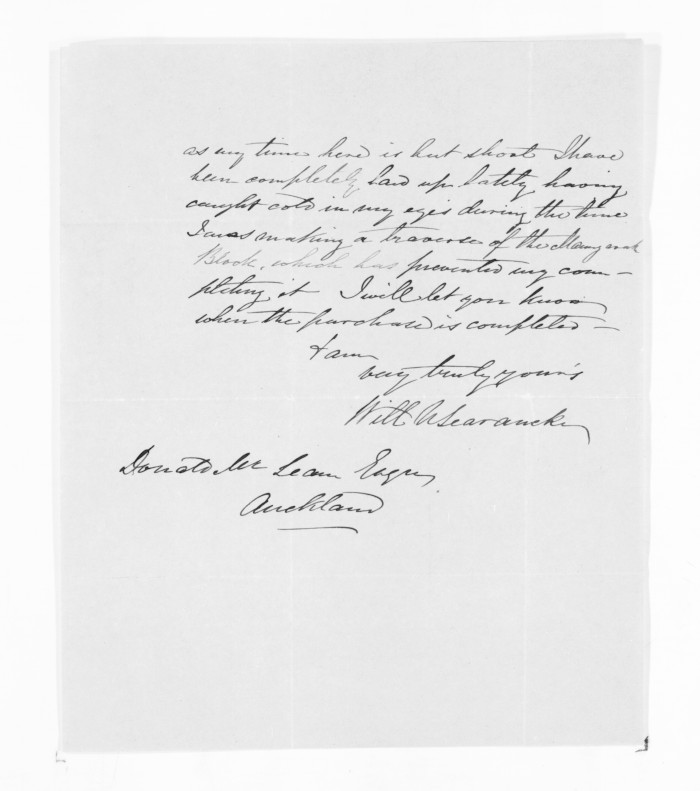 as my time here is but short I have
been completely laid up lately having
caught cold in my eyes during the time
I was making a traverse of the
Block, which has prevented my com-
pleting it I will let you know
when the purchase is completed -
I am
very truly yours
Will N Searancke
Donald Mc Lean Esqre
Auckland